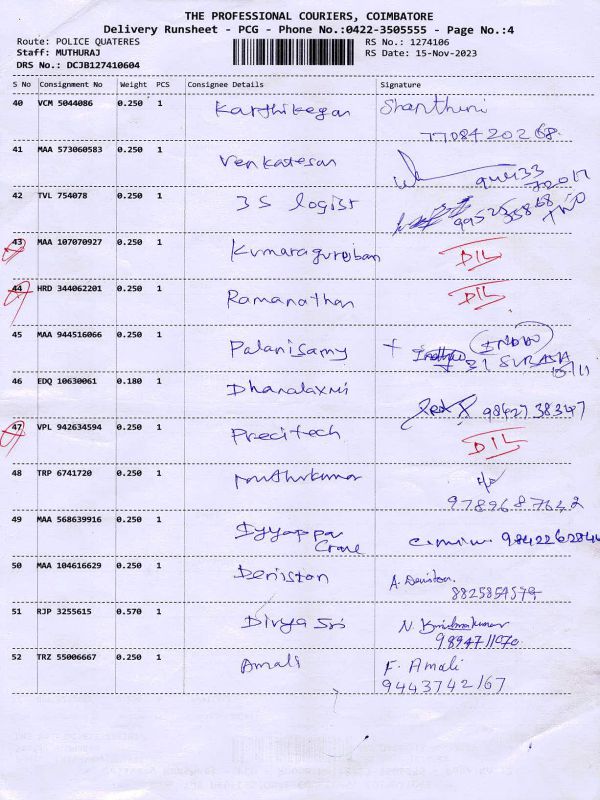 THE PROFESSIONAL COURIERS, COIMBATORE
Delivery Runsheet - PCG - Phone No.:0422-3505555 - Page No.:4
Route: POLICE QUATERES
RS No.: 1274106
Staff: MUTHURAJ
RS Date: 15-Nov-2023
DRS No.: DCJB127410604
S No Consignment No Weight PCS Consignee Details Signature
40 VCM 5044086 0.250 1 Karthikegan Shanthini
7708420268
41 MAA 573060583 0.250 1 Venkatesan
42 TVL 754078 0.250 1 3S logist
43 MAA 107070927 0.250 1 Kumaraguruban DIL
44 HRD 344062201 0.250 1 Ramanathan DIL
45 MAA 944516066 0.250 1 Palanisamy
46 EDQ 10630061 0.180 1 Dhanalaxmi
98427 38347
47 VPL 942634594 0.250 1 Precitech DIL
48 TRP 6741720 0.250 1 Muthukumar
9789687642
49 MAA 568639916 0.250 1 Iyyappa
Crane
50 MAA 104616629 0.250 1 Deniston A. Deniston
51 RJP 3255615 0.570 1 Divya Sri
52 TRZ 55006667 0.250 1 Amali F. Amali
9443742167